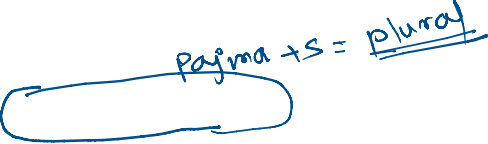 pajma +s = plural